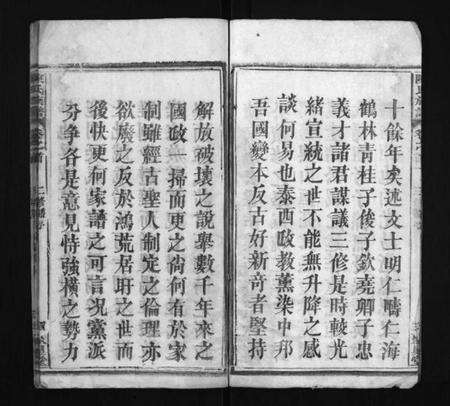 十餘年矣述文士明仁疇仁海
鶴林青桂子俊子欽堯卿子忠
義才諸君謀議三修是時較光
緒宣統之世不能無升降之感
談何易也泰西政教熏染中邦
吾國變本反古好新奇者堅持
解放破壞之說舉數千年來之
國政一掃而更之尚何有於家
制雖經古聖人制定之倫理亦
欲廢之反於鴻荒居㺃之世而
後快更何家譜之可言況黨派
分爭各是意見情強橫之勢力